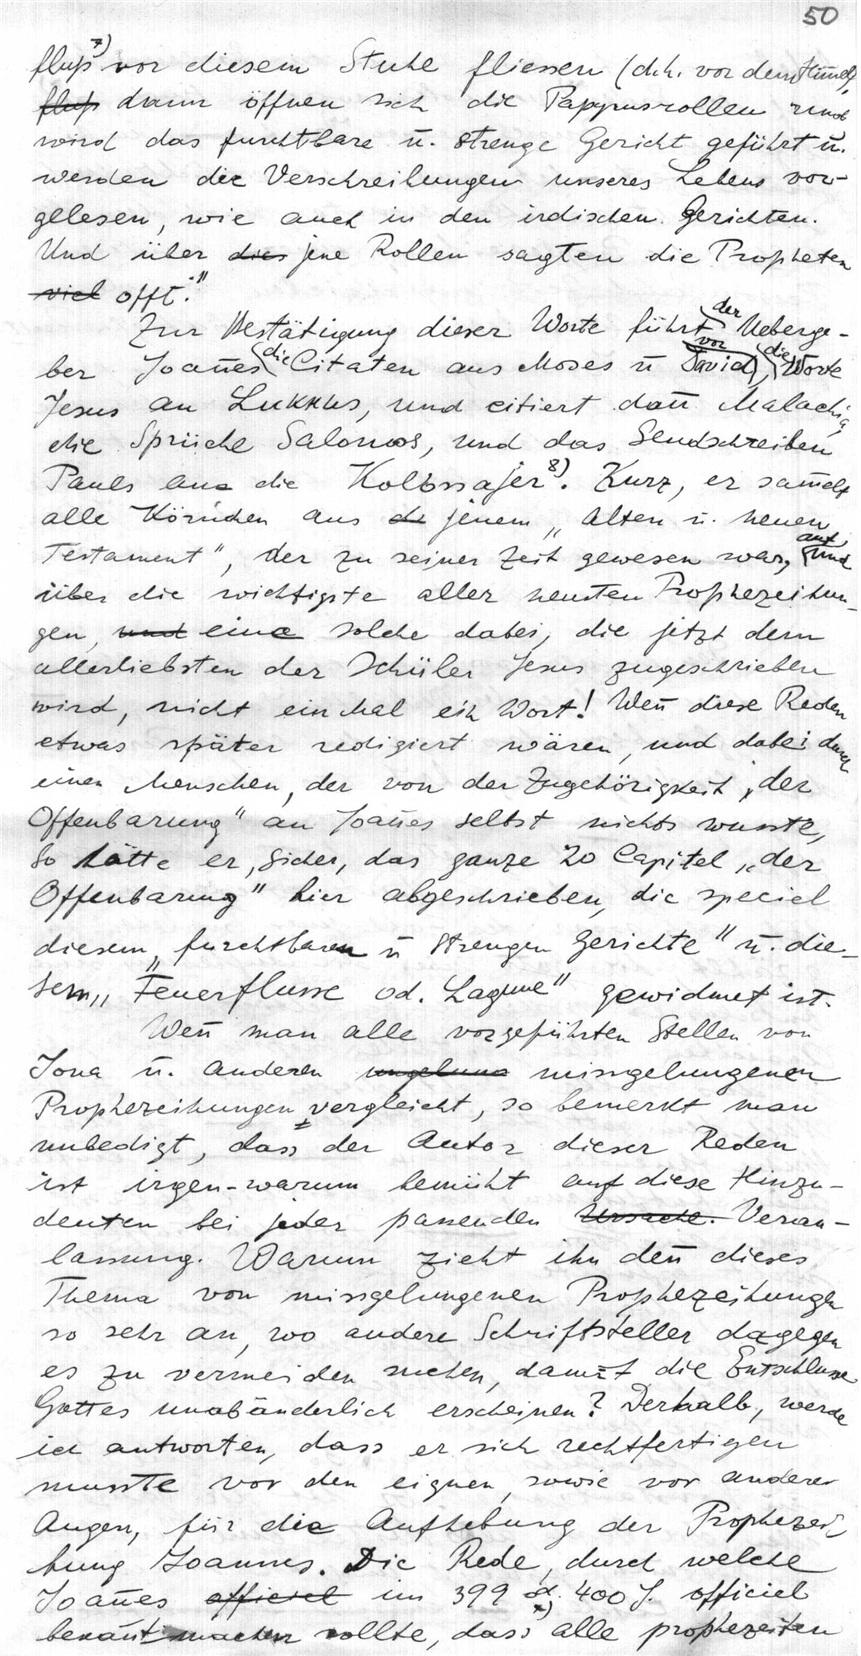 50
fluß 7) vor diesem Stuhl fliessen (d.h. vor dem Himmel),
fluß dann öffnen sich die Papyrusrollen und
wird das furchtbare u. strenge Gericht geführt u.
werden die Verschreibungen unseres Lebens vor-
gelesen, wie auch in den irdischen Gerichten.
Und über dies jene Rollen sagten die Propheten
viel offt."
Zur Bestätigung dieser Worte führt der Ueberge-
ber Joan̄es die Citaten aus Moses u vor David, die Worte
Jesus an Lukkus, und citiert dan̄ Malachia,
die Sprüche Salomos, und das Sendschreiben
Pauls an die Kolossajer 8). Kurz, er sam̄elt
alle Körnchen aus d jenem „Alten u. neuen
Testament", der zu seiner Zeit gewesen war, und auf
über die wichtigste aller neusten Prophezeihun-
gen, und eine solche dabei, die jetzt dem
allerliebsten der Schüler Jesus zugeschrieben
wird, nicht ein Mal ein Wort! Wen̄ diese Reden
etwas später redigiert wären, und dabei durch
einen Menschen, der von der Zugehörigkeit „der
Offenbarung" an Joan̄es selbst nichts wusste,
so hätte er, sicher, das ganze 20 Capitel „der
Offenbarung" hier abgeschrieben, die speciel
diesem „furchtbaren u strengen Gerichte" u. die-
sem „Feuerflusse od. Lagune" gewidmet ist.
Wen̄ man alle vorgeführten Stellen von
Jona u. anderen missgelungenen
Prophezeihungen vergleicht, so bemerkt man
unbedigt, dass der Autor dieser Reden
ist irgen-warum bemüht auf diese Hinzu-
deuten bei jeder passenden Ursache. Veran-
lassung. Warum zieht ihn den̄ dieses
Thema von missgelungenen Prophezeihungen
so sehr an, wo andere Schriftsteller dagegen
es zu vermeiden suchen, damit die Entschlusse
Gottes unabänderlich erscheinen? Deshalb, werde
ich antworten, dass er sich rechtfertigen
musste vor den eignen, sowie vor anderer
Augen, für die Aufhebung der Prophezei-
hung Joannes. Die Rede, durch welche
Joan̄es officiel im 399 od. 400 J. officiel
bekan̄t machen sollte, dass x) alle prophezeiten